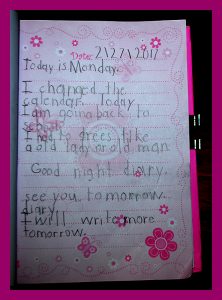 Date: 2/27/2017
Today is Monday.
I changed the
calendar. Today
I am going back to
school.
I had to dress like
a old lady or old man
Good night diary,
see you tomorrow
diary
I will write more
tomorrow.